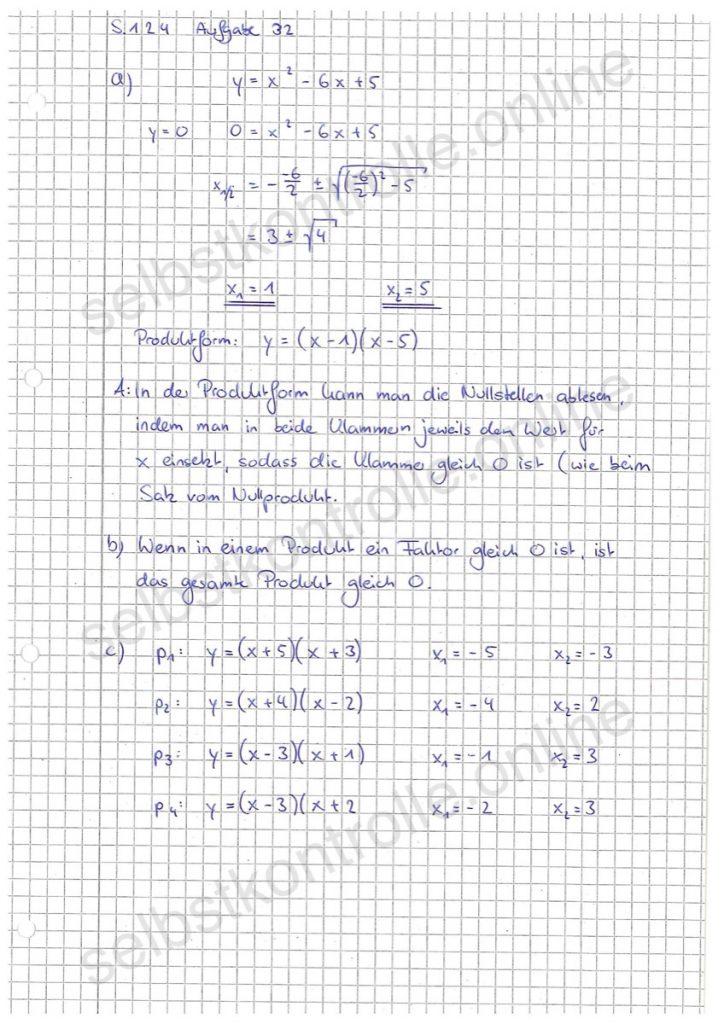 S.124 Aufgabe 32
a) y = x² - 6x + 5
y = 0 0 = x² - 6x + 5
x₁/₂ = - -6/2 ± √((-6/2)² - 5)
= 3 ± √4
x₁ = 1 x₂ = 5
Produktform: y = (x - 1)(x - 5)
A: In der Produktform kann man die Nullstellen ablesen,
indem man in beide Klammern jeweils den Wert für
x einsetzt, sodass die Klamme gleich 0 ist (wie beim
Satz vom Nullprodukt.
b) Wenn in einem Produkt ein Faktor gleich 0 ist, ist
das gesamte Produkt gleich 0.
c) p1: y = (x + 5)(x + 3) x₁ = - 5 x₂ = - 3
p2: y = (x + 4)(x - 2) x₁ = - 4 x₂ = 2
p3: y = (x - 3)(x + 1) x₁ = - 1 x₂ = 3
p4: y = (x - 3)(x + 2 x₁ = - 2 x₂ = 3
selbstkontrolle.online
selbstkontrolle.online
selbstkontrolle.online